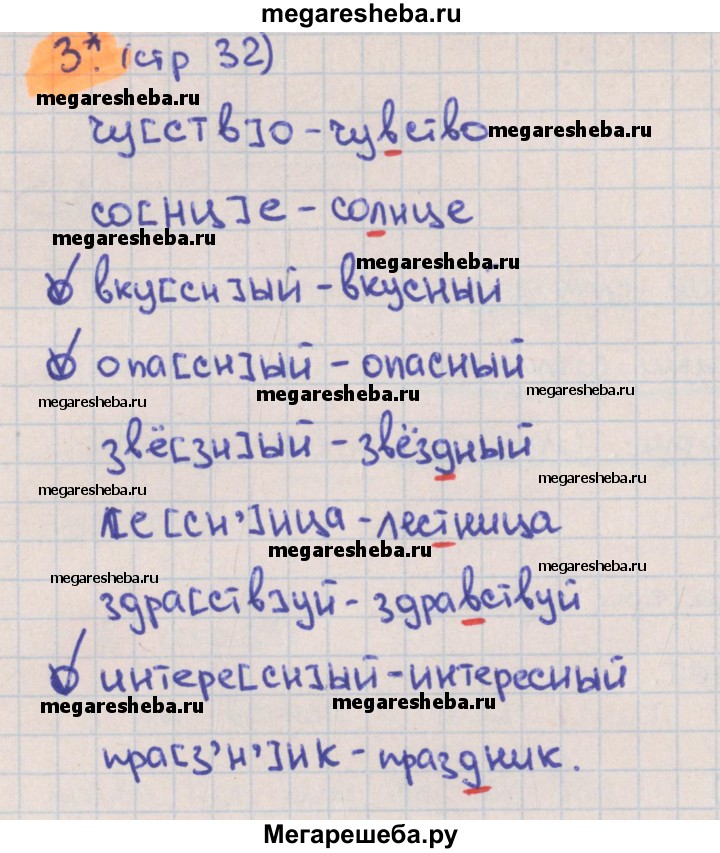 megaresheba.ru
3*. (стр 32)
megaresheba.ru
чу[ств]о - чувство megaresheba.ru
со[нц]е - солнце
megaresheba.ru
megaresheba.ru
вку[сн]ый - вкусный
опа[сн]ый - опасный
megaresheba.ru megaresheba.ru megaresheba.ru
звё[зн]ый - звёздный
megaresheba.ru megaresheba.ru
ле[сн']ица - лестница
megaresheba.ru
megaresheba.ru megaresheba.ru
здра[ств]уй - здравствуй
интере[сн]ый - интересный
megaresheba.ru megaresheba.ru
пра[з'н']ик - праздник.
Мегарешеба.ру